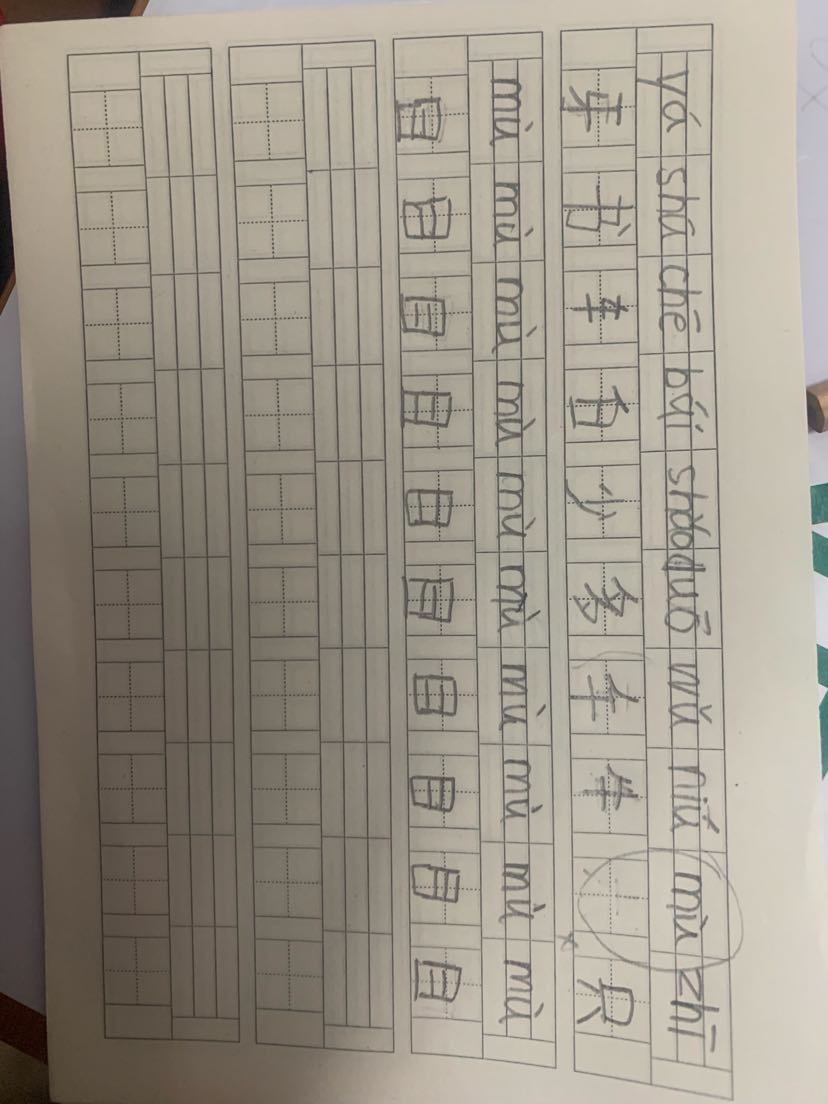 yá shū chē bái shǎo duō wǔ niú mù zhī
牙 书 车 白 少 多 午 牛 只
mù mù mù mù mù mù mù mù mù mù
目 目 目 目 目 目 目 目 目 目